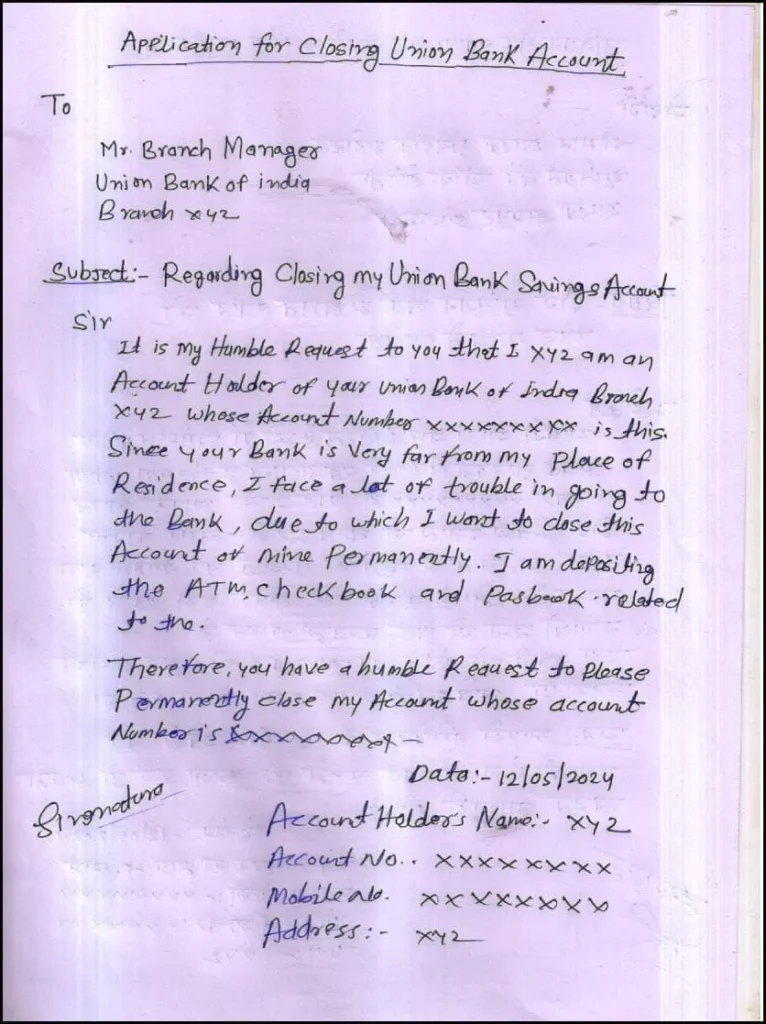 Application for Closing Union Bank Account.
To
Mr. Branch Manager
Union Bank of india
Branch xyz
Subject:- Regarding Closing my Union Bank Savings Account
Sir
It is my Humble Request to you that I XYZ am an
Account Holder of your union Bank of India Branch
XYZ whose Account Number xxxxxxxxx is this.
Since your Bank is Very far from my Place of
Residence, I face a lot of trouble in going to
the Bank, due to which I want to close this
Account of mine Permanently. I am depositing
the ATM, Checkbook and Pasbook related
to the.
Therefore, you have a humble Request to Please
Permanently close my Account whose account
Number is xxxxxxxxx -
Date:- 12/05/2024
Signature
Account Holders Name:- xyz
Account No.. xxxxxxxx
Mobile No. xxxxxxxx
Address:- xyz